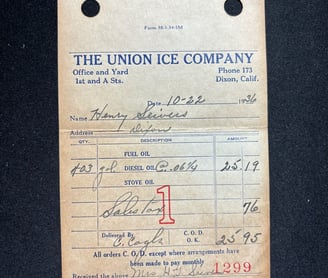 Form M-1-34-5M
THE UNION ICE COMPANY
Office and Yard Phone 173
1st and A Sts. Dixon, Calif.
Date 10-22 1936
Name Henry Seivers
Address Dixon
QTY. DESCRIPTION AMOUNT
FUEL OIL
403 gal. DIESEL OIL @ .06¼ 25.19
STOVE OIL
Sales Tax 76
1
Delivered By C. O. D.
C. Cagle O. K. 25 95
All orders C. O. D. except where arrangements have
been made to pay monthly
Received the above Mrs H 1299